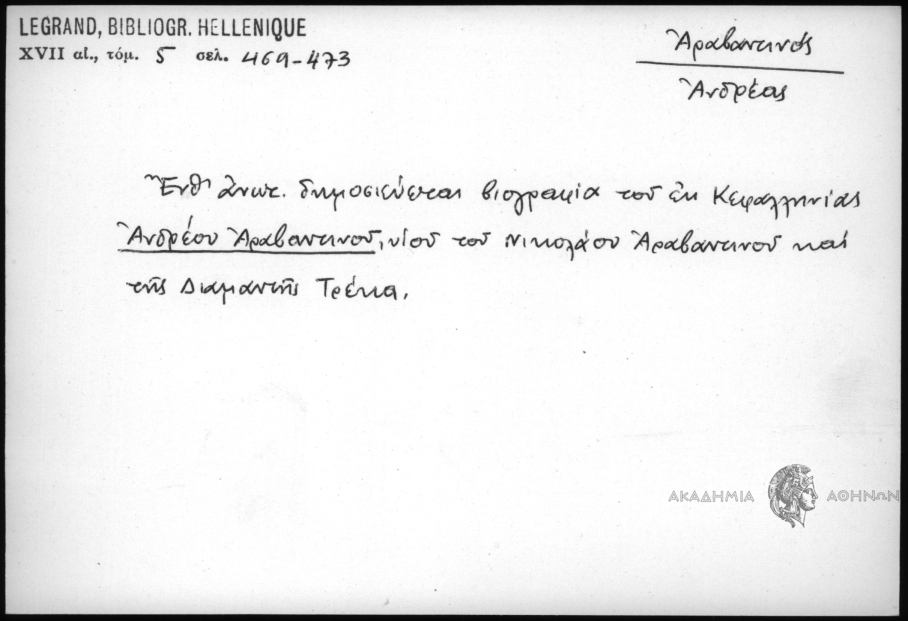 LEGRAND, BIBLIOGR. HELLENIQUE
XVII αἰ., τόμ. 5 σελ. 469-473
Ἀραβαντινός
Ἀνδρέας
Ἔνθ' ἀνωτ. δημοσιεύεται βιογραφία τοῦ ἐκ Κεφαλληνίας
Ἀνδρέου Ἀραβαντινοῦ, υἱοῦ τοῦ Νικολάου Ἀραβαντινοῦ καὶ
τῆς Διαμαντῆς Τρέκα.
ΑΚΑΔΗΜΙΑ ΑΘΗΝΩΝ